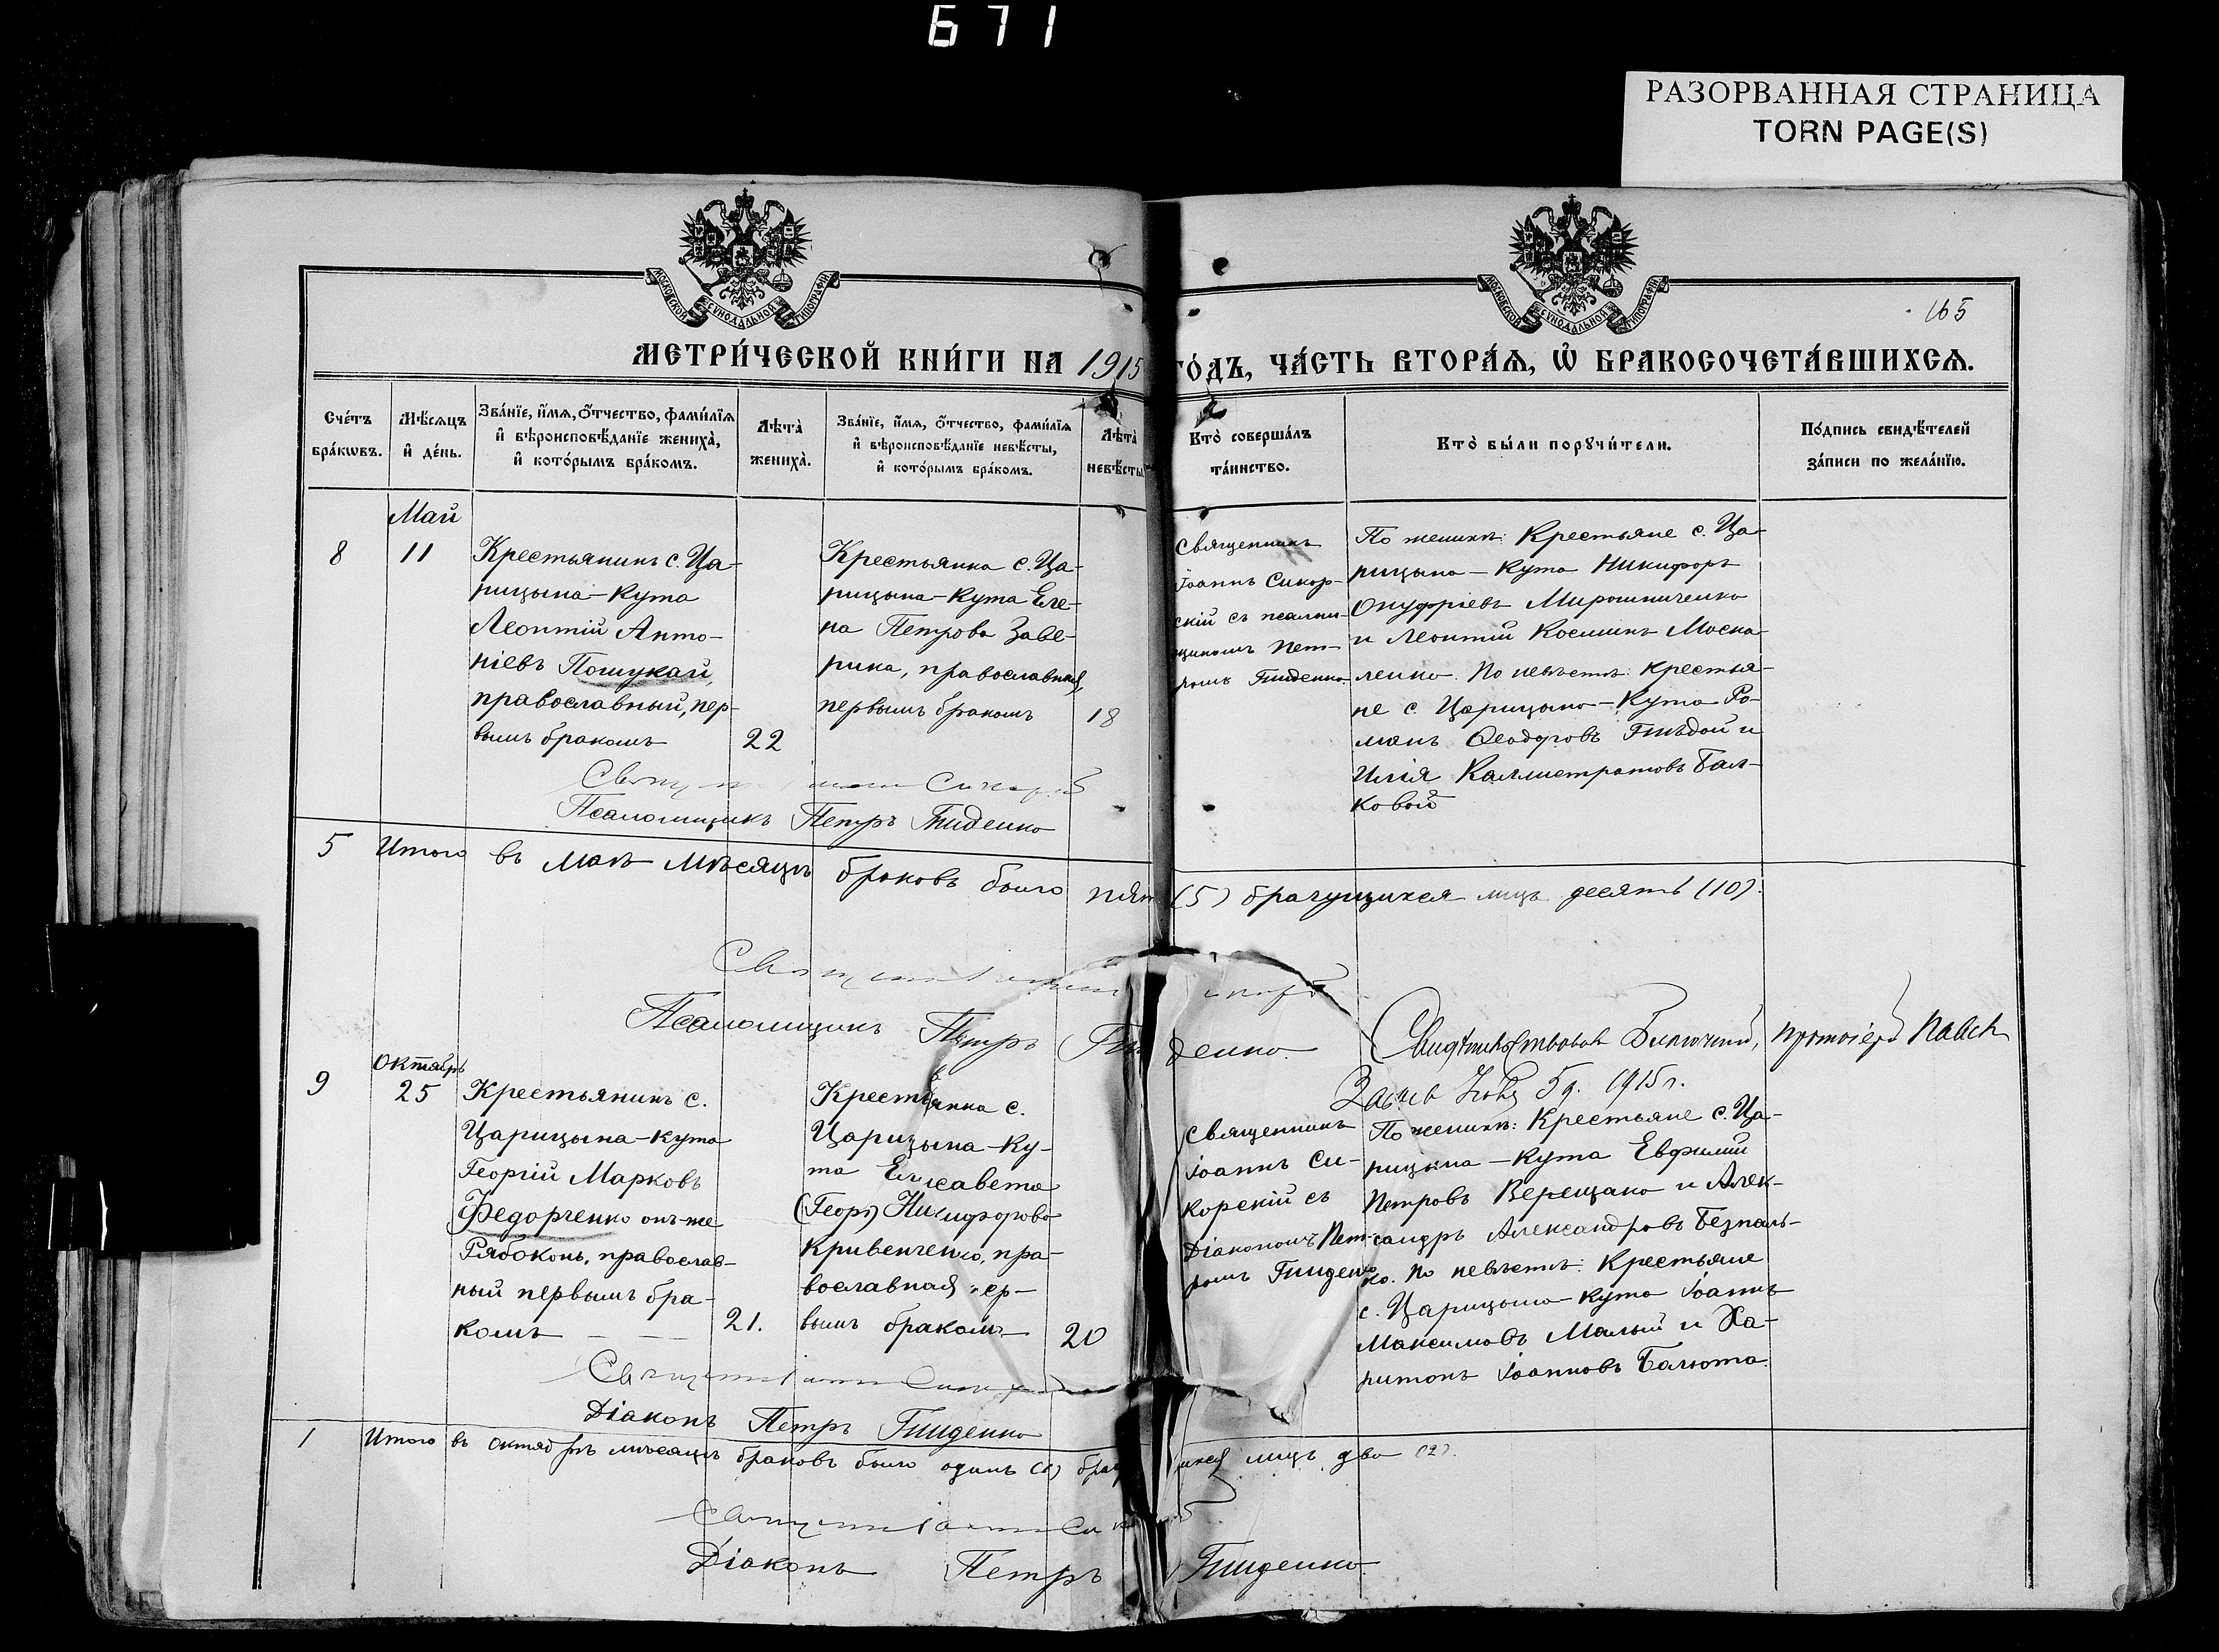 671
РАЗОРВАННАЯ СТРАНИЦА
TORN PAGE(S)
МОСКОВСКОЙ СѴНОДАЛЬНОЙ ТИПОГРАФІИ
МОСКОВСКОЙ СѴНОДАЛЬНОЙ ТИПОГРАФІИ
165
МЕТРИ́ЧЕСКОЙ КНИ́ГИ НА 1915 ГО́ДЪ, ЧА́СТЬ ВТОРА́Ѧ, Ѽ БРАКОСОЧЕТА́ВШИХСѦ.
Сче́тъ
бра́кѡвъ.
Мѣ́сяцъ
и де́нь.
Зва́нїе, и́мѧ, ѻ́тчество, фами́лїѧ
и вѣроисповѣ́данїе жениха̀,
и кото́рымъ бра́комъ.
Лѣта̀
жениха̀.
Зва́нїе, и́мѧ, ѻ́тчество, фами́лїѧ
и вѣроисповѣ́данїе невѣ́сты,
и кото́рымъ бра́комъ.
Лѣта̀
невѣ́сты
Кто̀ соверша́лъ
та́инство.
Кто̀ бы́ли порꙋчи́тели.
По́дпись свидѣ́телей
за́писи по жела́нїю.
8
Май
11
Крестьянинъ с. Ца-
рицына-Кута
Леонтій Анто-
ніевъ Пошукай,
православный, пер-
вымъ бракомъ
22
Крестьянка с. Ца-
рицына-Кута Еле-
на Петрова Заве-
рика, православная,
первымъ бракомъ
18
Священникъ
Іоаннъ Сикор-
скій съ псалом-
щикомъ Пет-
ромъ Гниденко.
По женихѣ: Крестьяне с. Ца-
рицына-Кута Никифоръ
Онуфріевъ Мирошниченко
и Леонтій Косминъ Моска-
ленко. По невѣстѣ: Крестья-
не с. Царицына-Кута Ро-
манъ Ѳеодоровъ Гнѣдой и
Илія Каллистратовъ Бал-
ковой
Псаломщикъ Петръ Гниденко
5 Итого въ маѣ мѣсяцѣ браковъ было пят (5) брачущихся лицъ десять (10).
Псаломщикъ Петръ Гниденко.
Свидѣтельствовалъ Благочинный, протоіерей
5 д. 1915 г.
9
Октябрь
25
Крестьянинъ с.
Царицына-Кута
Георгій Марковъ
Федорченко онъ-же
Рябоконь, православ-
ный первымъ бра-
комъ
21.
Крестьянка с.
Царицына-Ку-
та Елисавета
(Георг) Никифорова
Кривенченко, пра-
вославная пер-
вымъ бракомъ
20
Священникъ
Іоаннъ Си-
корскій съ
Діакономъ Пет-
ромъ Гниденко
По женихѣ: Крестьяне с. Ца-
рицына-Кута Евфимій
Петровъ Верещако и Алек-
сандръ Александровъ Безпаль-
ко. По невѣстѣ: Крестьяне
с. Царицына-Кута Іоаннъ
Максимовъ Малый и Ха-
ритонъ Іоанновъ Балюта.
Діаконъ Петръ Гниденко
1 Итого въ октябрѣ мѣсяцѣ браковъ было одинъ (1) брачущихся лицъ два (2).
Діаконъ Петръ Гниденко.